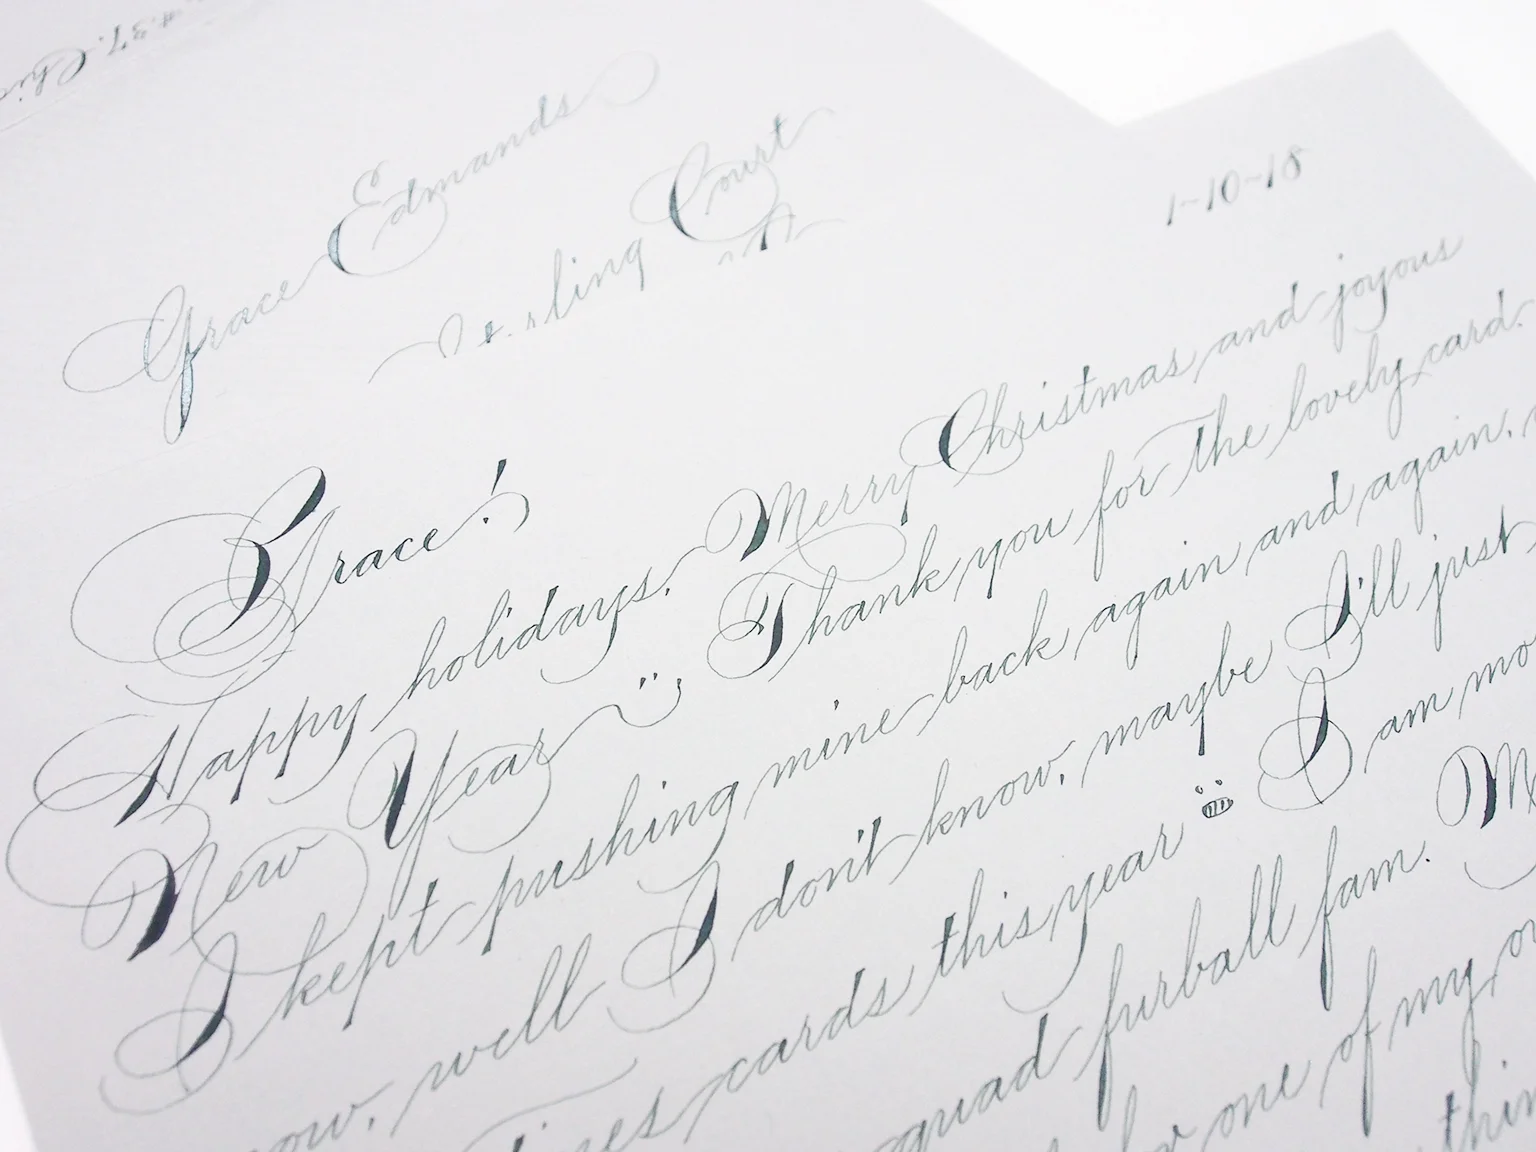 Grace Edmands
Court
1-10-18
Grace!
Happy holidays, Merry Christmas and joyous
New Year Thank you for the lovely card.
I kept pushing mine back again and again,
now, well I don't know, maybe I'll just
cards this year I am
squad furball fam.
one of my